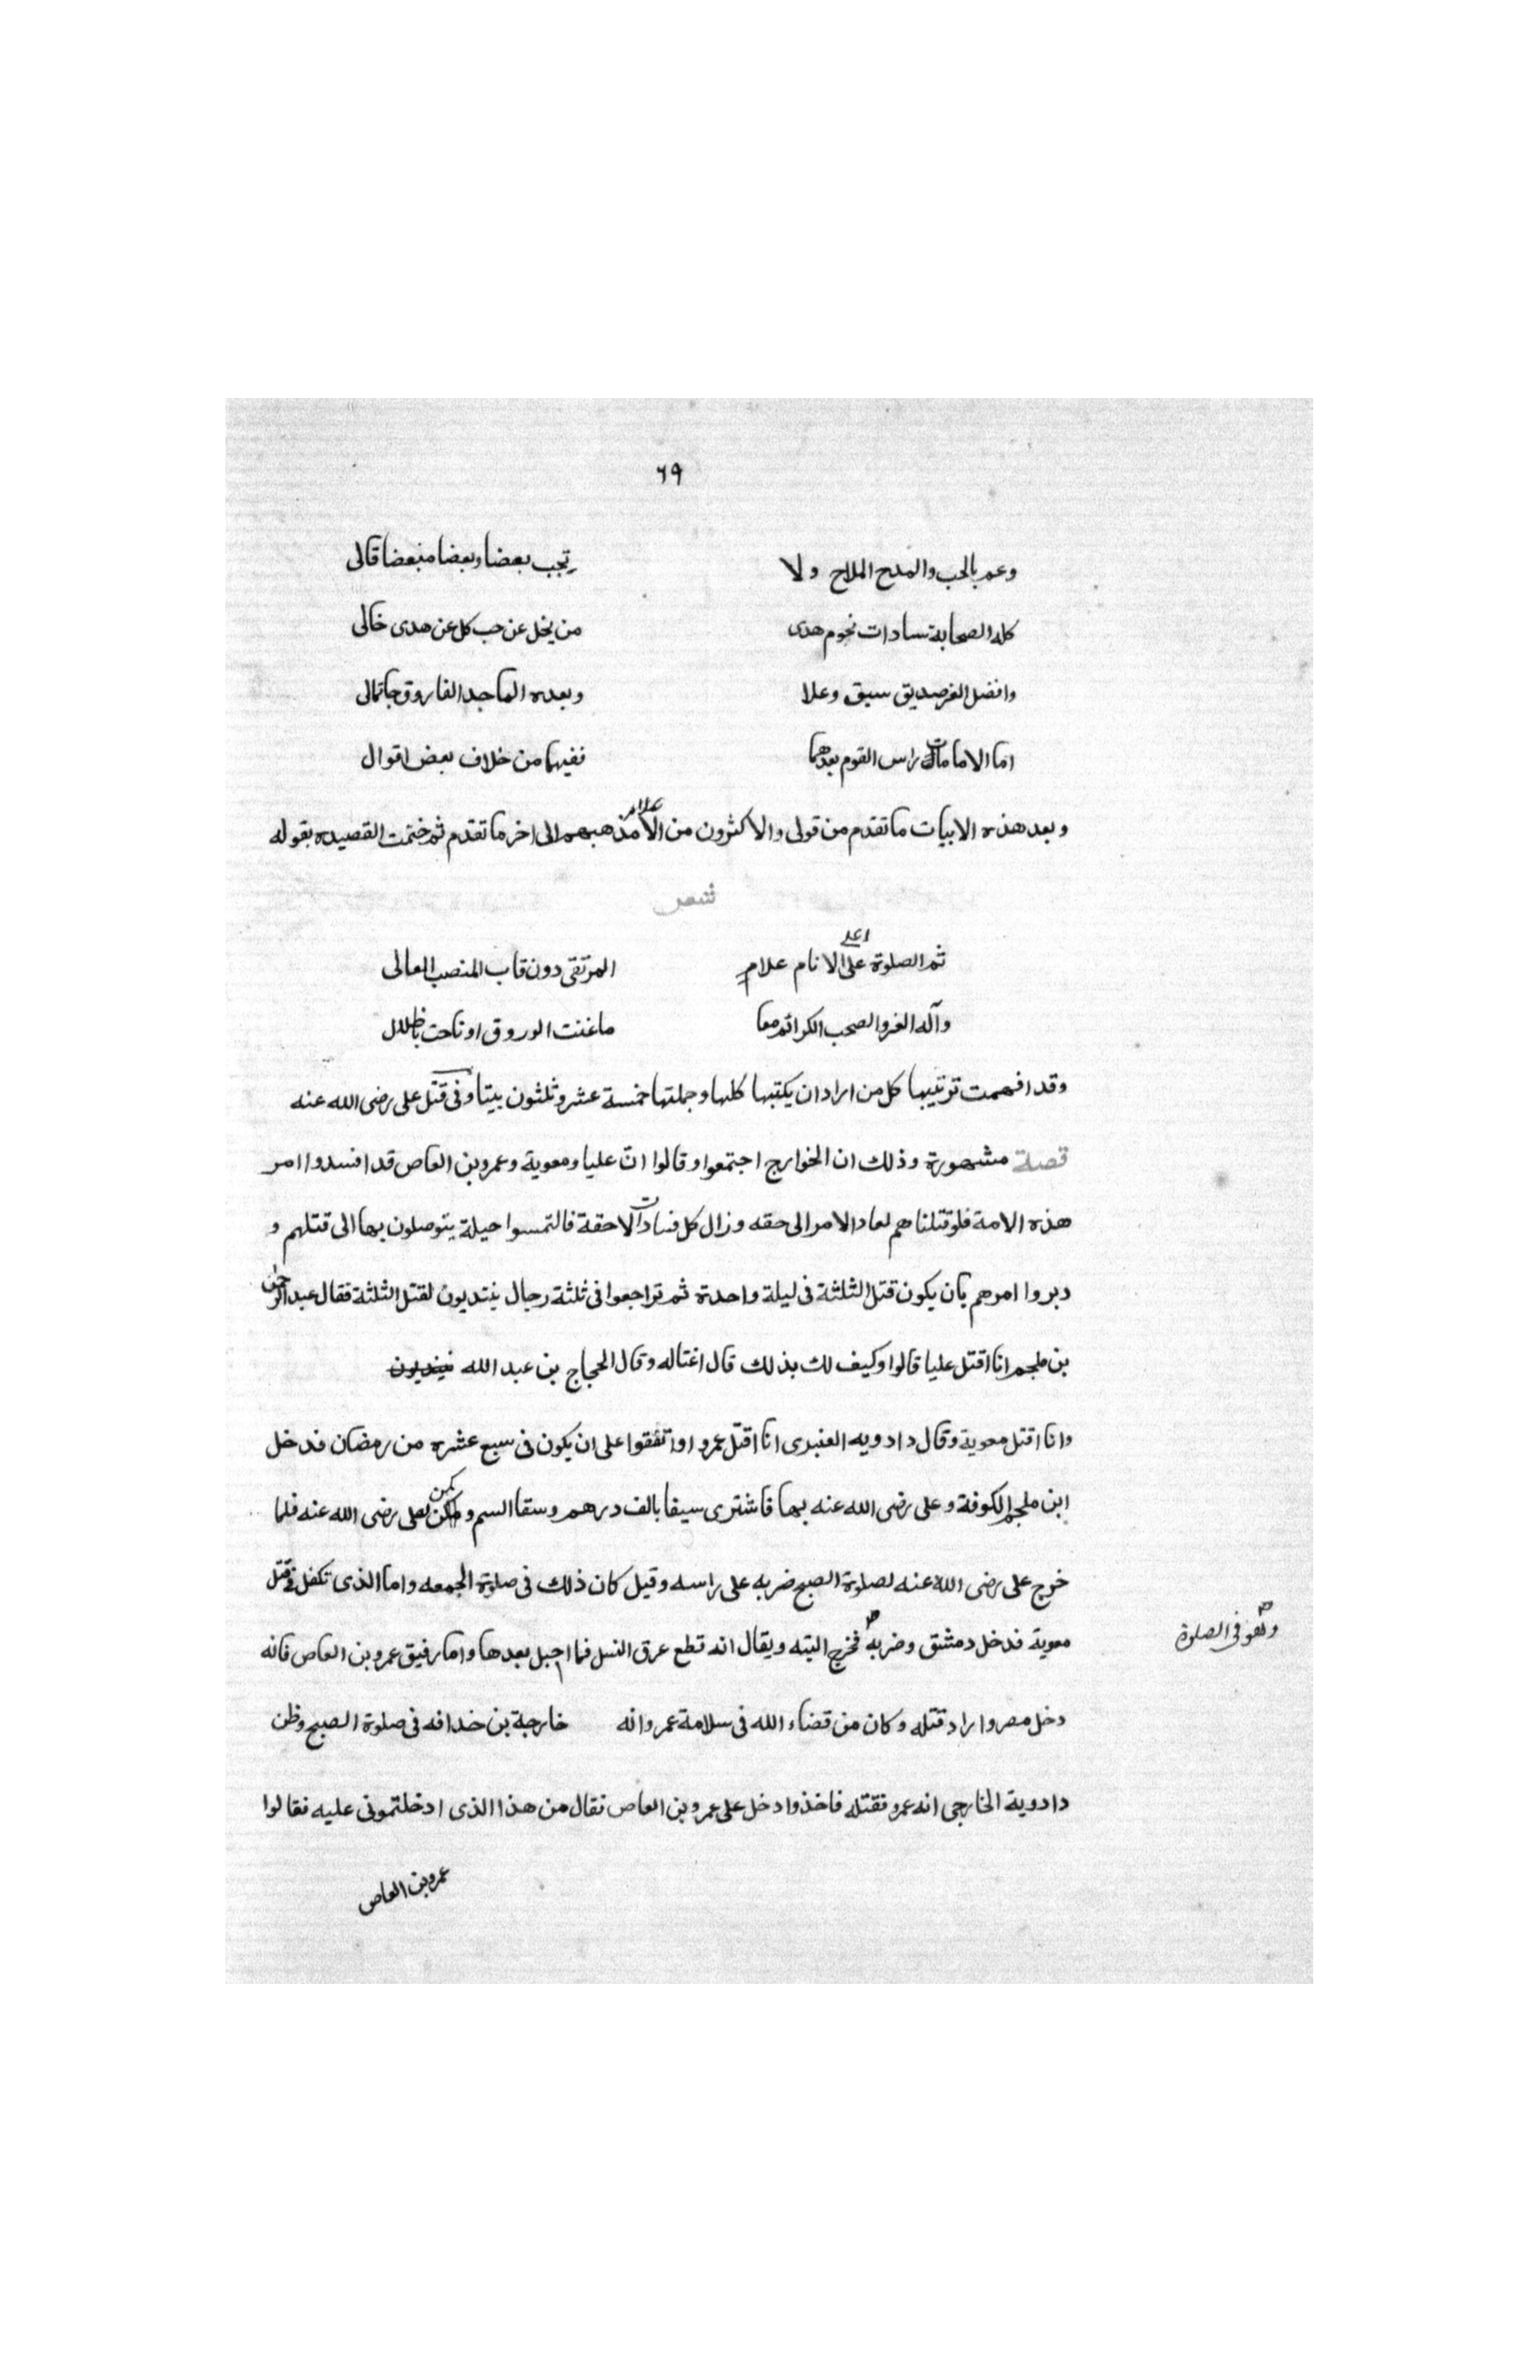 ٦٩
وعم بالحب والمدح الملاح ولا تحب بعضا وبعضا مبغضا قالى
كله الصحابة سادات نجوم هدى من يخل عن حب كل عن هدى خالى
وافضل الغر صديق سبق وعلا وبعده الماجد الفاروق
اما الامامان راس القوم بعدهما ففيهما من خلاف بعض اقوال
وبعد هذه الابيات ما تقدم من قولى والاكثرون من الاعلام مذهبهم الى اخر ما تقدم ثم ختمت القصيده بقوله
شعر
ثم الصلوة على اعلى الانام علام المرتقى دون قاب المنصب العالى
وآله الغر والصحب الكرائم معا ما غنت الوروق او ناحت باظلال
وقد افهمت ترتيبها كل من اراد ان يكتبها كلها وجملتها خمسة عشر وثلثون بيتا وفى قتل على رضى الله عنه
قصة مشهورة وذلك ان الخوارج اجتمعوا وقالوا ان عليا ومعوية وعمرو بن العاص قد افسدوا امر
هذه الامة فلو قتلناهم لعاد الامر الى حقه وزال كل فسادات الاحقة فالتمسوا حيلة يتوصلون بها الى قتلهم و
دبروا امرهم بان يكون قتل الثلثة فى ليلة واحدة ثم تراجعوا فى ثلثة رجال ينتديون لقتل الثلثة فقال عبد الرحمن
بن ملجم انا اقتل عليا قالوا وكيف لك بذلك قال اغتاله وقال الحجاج بن عبد الله
وانا اقتل معوية وقال دادويه العنبرى انا اقتل عمرو اواتفقوا على ان يكون فى سبع عشره من رمضان فدخل
ابن ملجم الكوفة وعلى رضى الله عنه بها فاشترى سيفا بالف درهم وسقا السم و يكمن لعلى رضى الله عنه فلما
خرج على رضى الله عنه لصلوة الصبح ضربه على راسه وقيل كان ذلك فى صلوة الجمعه واما الذى تكفل فى قتل
معوية فدخل دمشق وضربه فخرج اليته ويقال انه قطع عرق النسل فما احبل بعدها واما رفيق عمرو بن العاص فانه
وهو فى الصلوة
دخل مصر واراد قتله وكان من قضاء الله فى سلامة عمرو انه خارجة بن خدافه فى صلوة الصبح وظن
دادوية الخارجى انه عمرو فقتله فاخذ وادخل على عمرو بن العاص فقال من هذا الذى ادخلتمونى عليه فقالوا
عمرو بن العاص